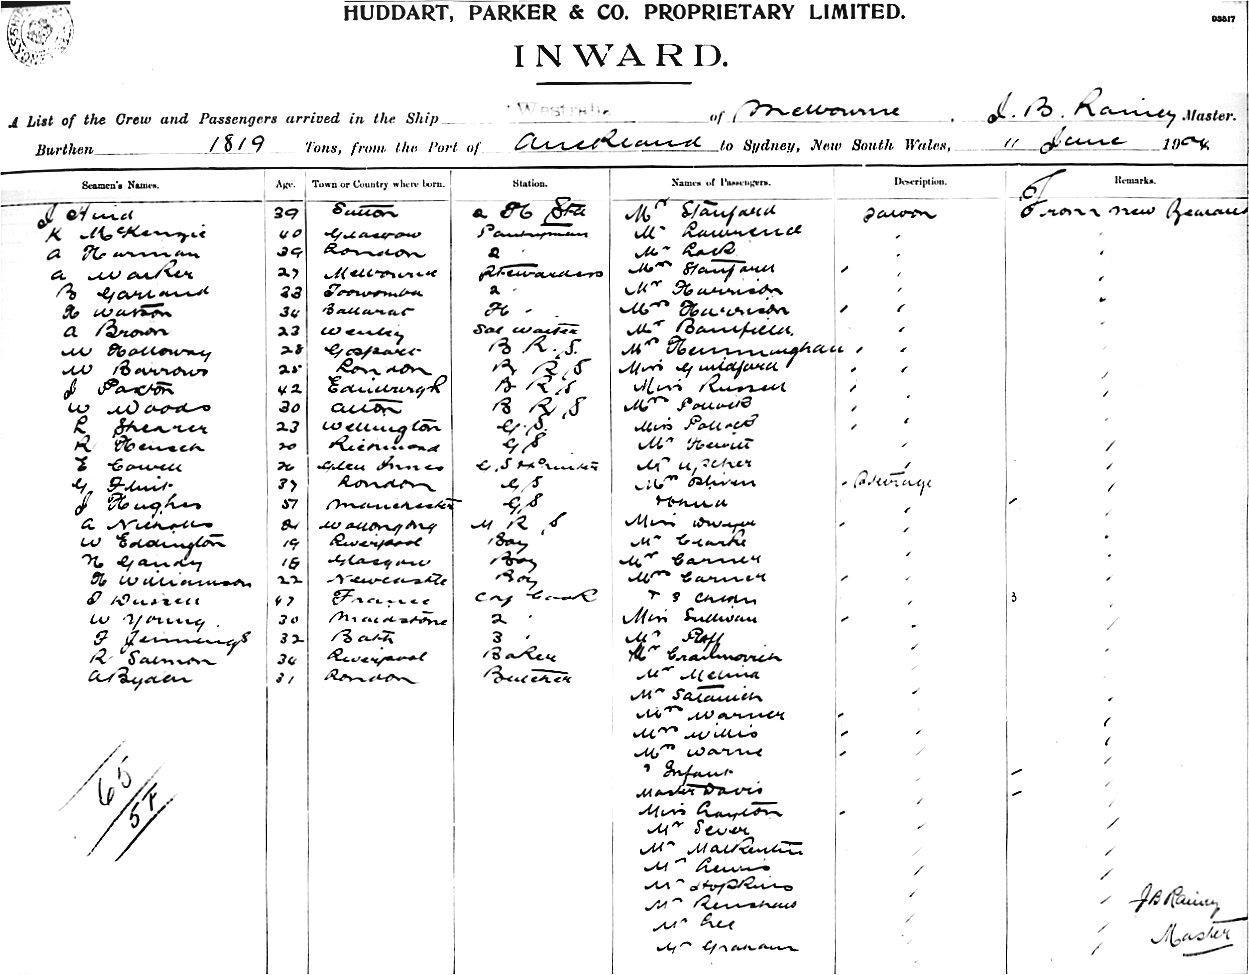 HUDDART, PARKER & CO. PROPRIETARY LIMITED.
INWARD.
A List of the Crew and Passengers arrived in the Ship Westralia of Melbourne, J. B. Rainey Master.
Burthen 1819 Tons, from the Port of Auckland to Sydney, New South Wales, 11 June 1904.
Seamen's Names. Age. Town or Country where born. Station. Names of Passengers. Description. Remarks.
J Hind 39 Sutton 2 H Std Mr Stanford Saloon From New Zealand
K McKenzie 40 Glasgow Pantryman Mr Lawrence
A Harman 39 London 2 " Mr Lack
A Walker 27 Melbourne Stewardess Mrs Stanford
B Garland 33 Toowomba 2 " Mr Harrison
H Watson 34 Ballarat H " Mrs Harrison
A Brown 23 Wenley Sal Waiter Mr Bamfield
W Holloway 28 Gosport B R S. Mrs Hemmingham
W Barrows 25 London B R S Miss Guildford
J Paxton 42 Edinburgh B R S Miss Russell
W Woods 30 Alton B R S Mrs Pollock
R Shearer 23 Wellington G.S. Miss Pollock
R Hensch 20 Richmond G S Mr Hewitt
E Cowell 26 Glen Innes G. S Mr Upcher
G Flint 37 London G S Mrs Steerage
J Hughes 57 Manchester G S
A Nicholls 21 Wollongong M R S Miss Dwyer
W Eddington 19 Liverpool Boy Mr Clarke
N Gandy 18 Glasgow Boy Mr Garner
H Williamson 22 Newcastle Boy Mrs Garner
47 France Chf Cook " 3 Chdn 3
W Young. 30 Maidstone 2 " Miss Sullivan
F Jennings 32 Bath 3 " Mr
R Salmon 34 Liverpool Baker Mr
A Byden 31 London Butcher Mr
Mr
Mrs Warner
Mrs Willis
Mrs Warne
" Infant
Master Davis
Miss Clayton
Mr Sever
Mr
Mr Lewis
Mr Hopkins
Mr Renshaw
Mr Lee
Mr Graham
65
5F
J B Rainey
Master